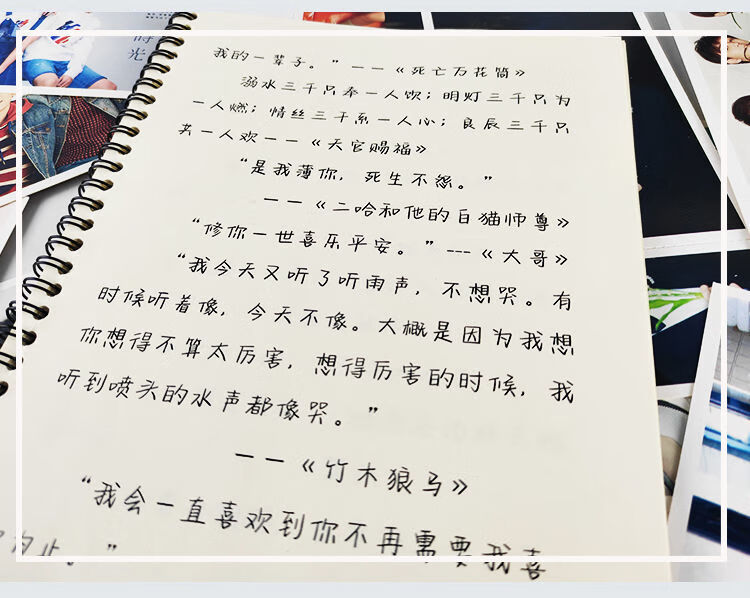 時光
我的一辈子。”——《死亡万花筒》
溺水三千只奉一人饮；明灯三千只为
一人燃；情丝三千系一人心；良辰三千只
共一人欢——《天官赐福》
“是我薄你，死生不怨。”
——《二哈和他的白猫师尊》
“修你一世喜乐平安。”---《大哥》
“我今天又听了听雨声，不想哭。有
时候听着像，今天不像。大概是因为我想
你想得不算太厉害，想得厉害的时候，我
听到喷头的水声都像哭。”
——《竹木狼马》
“我会一直喜欢到你不再需要我喜
为止。”